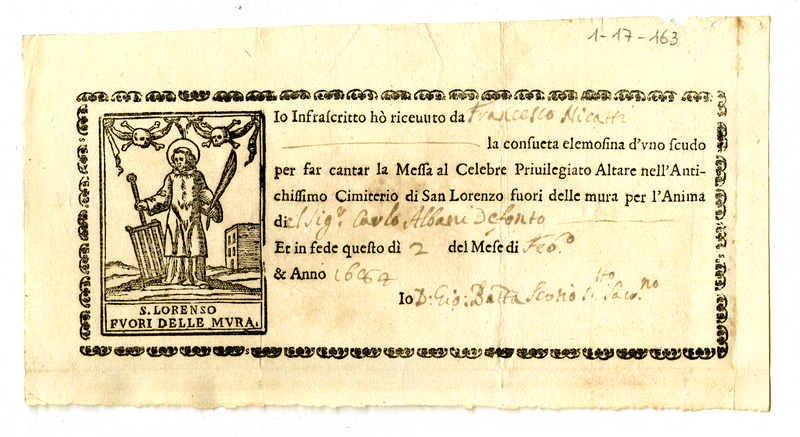 1-17-163
S. LORENSO
FVORI DELLE MVRA.
Io Infrascritto hò riceuuto da Francesco Nicatti
la consueta elemosina d'vno scudo
per far cantar la Messa al Celebre Priuilegiato Altare nell'Anti-
chissimo Cimiterio di San Lorenzo fuori delle mura per l'Anima
del Sigʳ. Carlo Albani Defonto
Et in fede questo dì 2 del Mese di Febᵒ
& Anno 1664
Io D: Gio: Batta